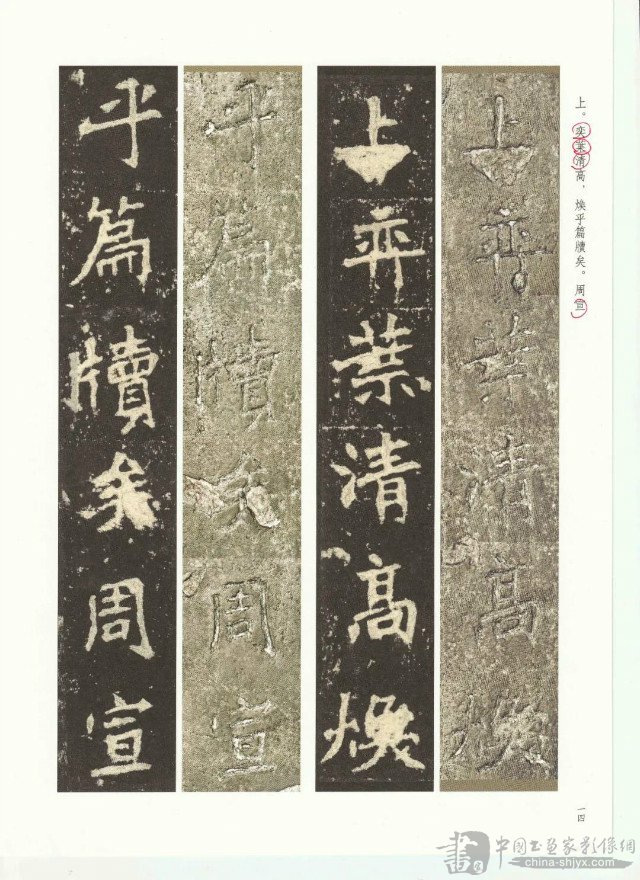 上。奕葉清高，煥乎篇牘矣。周宣
上弈葉清高煥
上弈葉清高煥
乎篇牘矣周宣
乎篇牘矣周宣
一四
書 中國書畫家影像網
china-shjyx.com